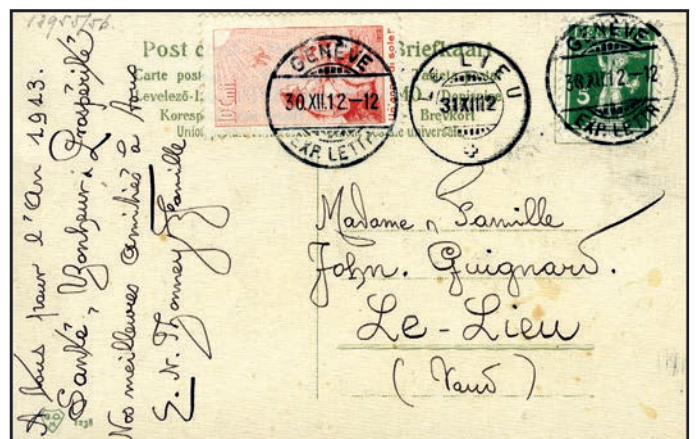 12955/56
Post c
Briefkaart
Carte post
Levelező-L
Koresp
Brevkort
Union
stale universelle
10 Cmi
GENÈVE
30.XII.12-12
EXP. LETTR.
LIEU
31 XII 12
GENÈVE
30.XII.12-12
EXP. LETTR.
5
A vous pour l'an 1913.
Santé, Bonheur & Prospérité
Nos meilleures amitiés à tous
famille
Madame & famille
John. Guignard.
Le-Lieu
(Vaud)
1238